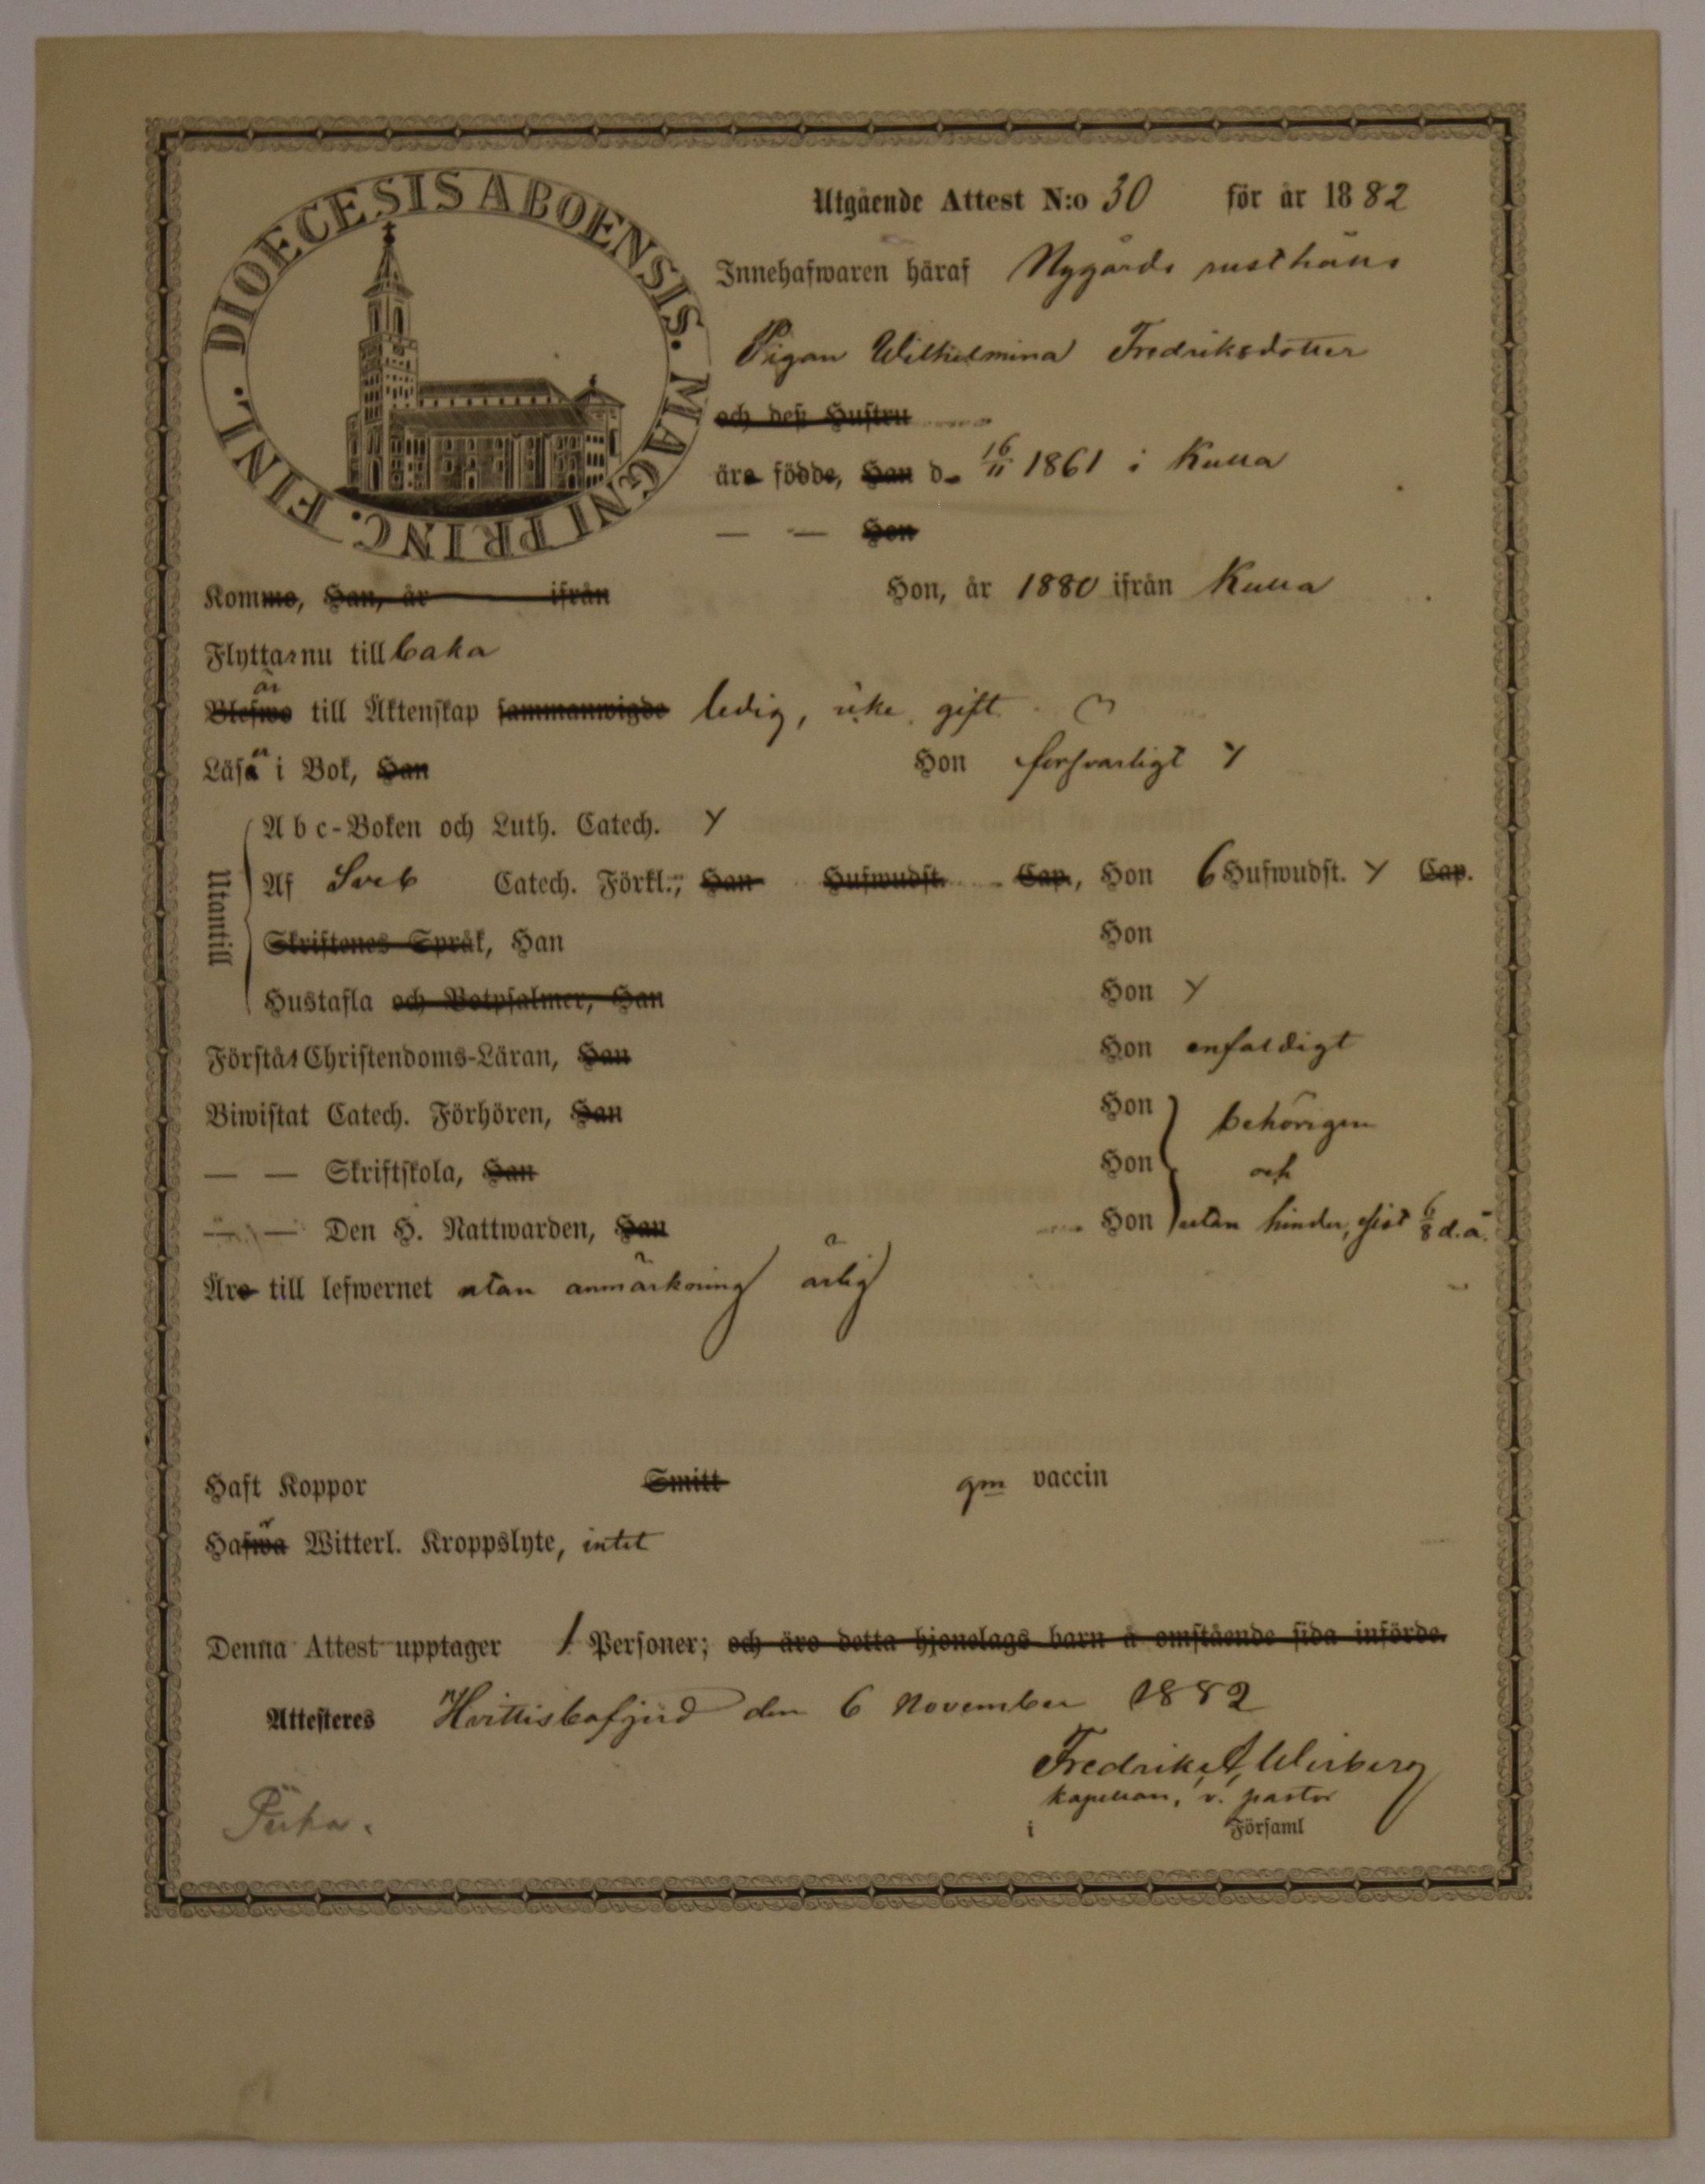 DIOECESIS ABOENSIS. MAGNI PRINC. FINL.
Utgående Attest N:o 30 för år 1882
Innehafwaren häraf Nygårds rusthålls
Pigan Wilhelmina Fredriksdotter
och deß Hustru
äro födde, Han d. 16/11 1861 i Kulla
— — Hon
Kommo, Han, år ifrån Hon, år 1880 ifrån Kulla
Flytta nu tillbaka
är
Blefwo till Äktenskap sammanwigde ledig, icke gift
Läsa i Bok, Han Hon försvarligt Y
Utantill
Abc-Boken och Luth. Catech. Y
Af Sveb Catech. Förkl., Han Hufwudst. Cap., Hon 6 Hufwudst. Y Cap.
Skriftenes Språk, Han Hon
Hustafla och Botpsalmer, Han Hon Y
Förstår Christendoms-Läran, Han Hon enfaldigt
Biwistat Catech. Förhören, Han Hon behörigen
— — Skriftskola, Han Hon och
— — Den H. Nattwarden, Han Hon utan hinder, sist 6/8 d.å.
Äro till lefwernet utan anmärkning ärlig
Haft Koppor Smitt gm vaccin
Hafwa Witterl. Kroppslyte, intet
Denna Attest upptager 1 Personer; och äro detta hjonelags barn å omstående sida införde.
Attesteres Hvittisbofjerd den 6 November 1882
Fredrik A. Wirberg
kapellan, v. pastor
i Församl